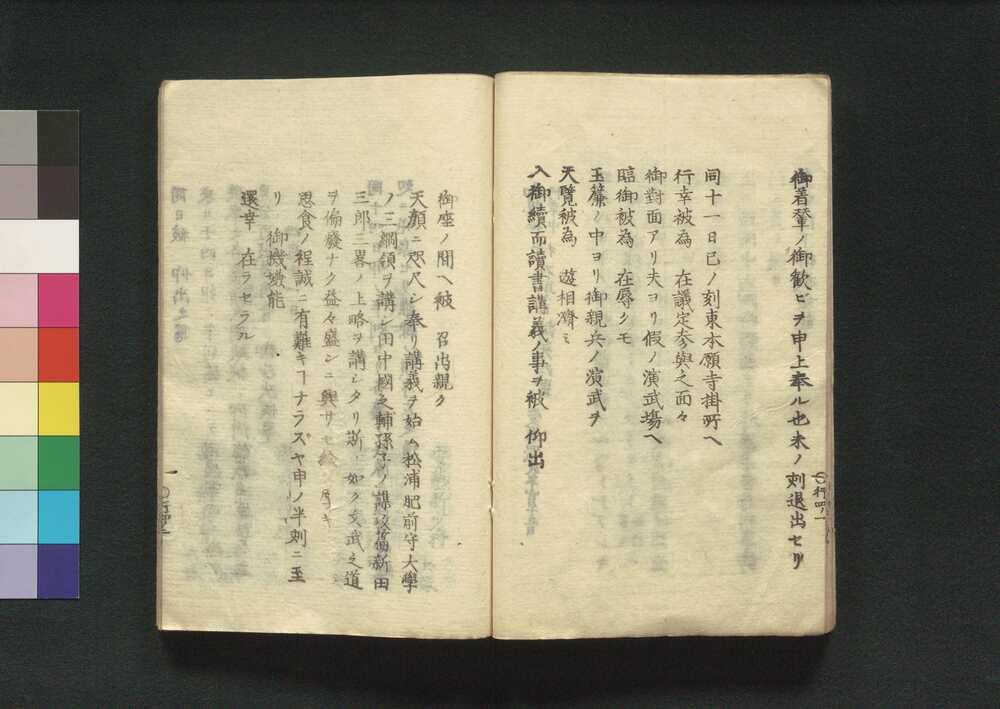 御着輦ノ御歓ヒヲ申上奉ル也未ノ刻退出セリ
〇行四ノ一
同十一日巳ノ刻東本願寺掛所ヘ
行幸被為 在議定参與之面々
御對面アリ夫ヨリ假ノ演武場ヘ
臨御被為 在辱クモ
玉簾ノ中ヨリ御親兵ノ演武ヲ
天覧被為 遊相濟ミ
入御續而讀書講義ノ事ヲ被 仰出
御座ノ間ヘ被 召出親ク
天顔ニ咫尺シ奉リ講義ヲ始ム松浦肥前守大學
ノ三綱領ヲ講シ田中國之輔孫子ノ謀攻篇新田
三郎三畧ノ上略ヲ講シタリ斯ノ如ク文武之道
ヲ偏癈ナク益々盛ンニ興サセ給
思食ノ程誠ニ有難キヿナラスヤ申ノ半刻ニ至
リ 御機嫌能
還幸 在ラセラル